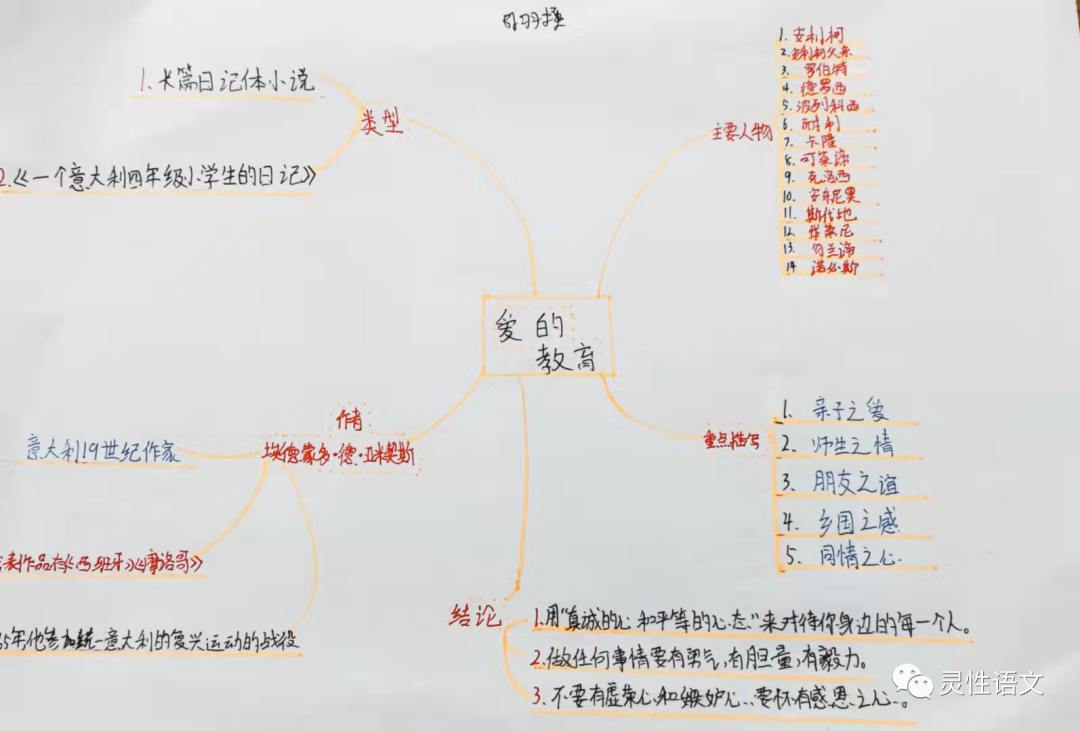 1.长篇日记体小说
类型
2.《一个意大利四年级小学生的日记》
主要人物
1. 安利柯
2.安利柯父亲
3. 罗伯特
4. 德罗西
5. 波列科西
6. 耐利
7. 卡隆
8. 可莱谛
9. 克洛西
10. 安东尼奥
11. 斯代地
12. 华莱尼
13. 勿兰谛
14 诺必斯
爱的
教育
作者
埃德蒙多·德·亚米契斯
意大利19世纪作家
表作品有《西班牙》《摩洛哥》
5年他参加统一意大利的复兴运动的战役
重点描写
1. 亲子之爱
2. 师生之情
3. 朋友之谊
4. 乡国之感
5. 同情之心.
结论
1.用"真诚的心和平等的心态"来对待你身边的每一个人。
2.做任何事情要有勇气,有胆量,有毅力。
3.不要有虚荣心和嫉妒心.要怀有感恩之心.。
灵性语文